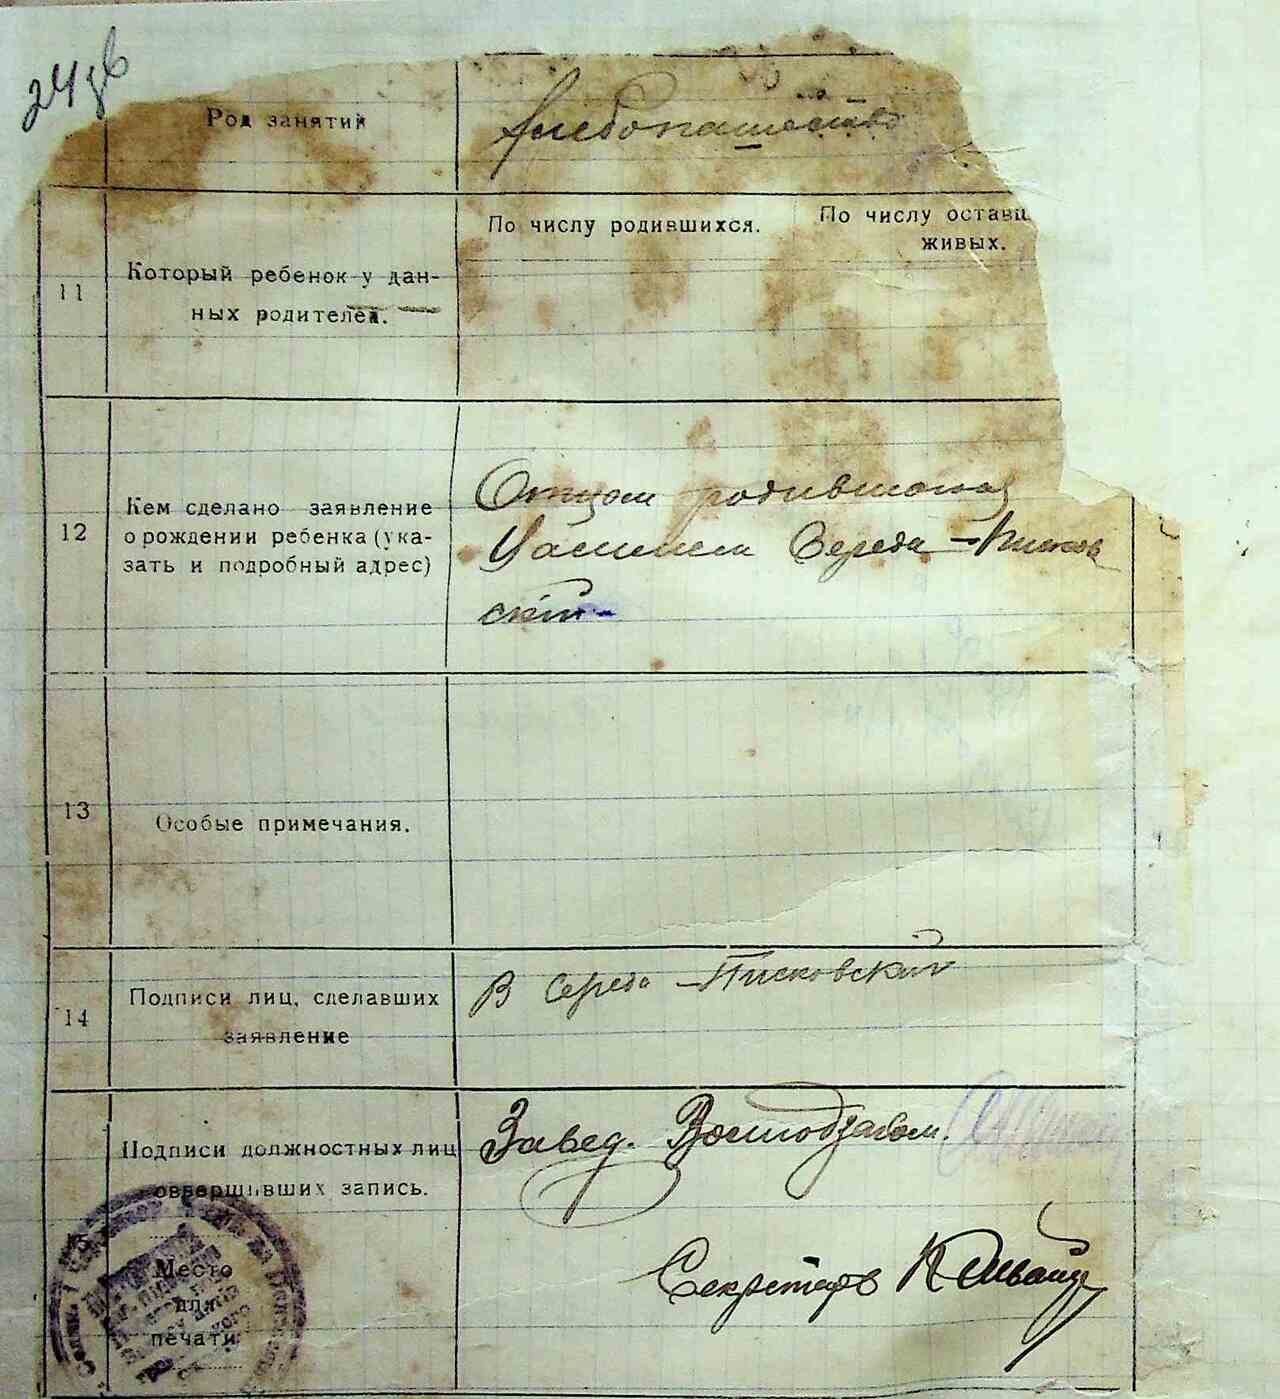 Род занятий
хлебопашество
11
Который ребенок у дан-
ных родителей.
По числу родившихся.
По числу оставш
живых.
12
Кем сделано заявление
о рождении ребенка (ука-
зать и подробный адрес)
Отцом родившогося
Середа-Писков
ский
13
Особые примечания.
14
Подписи лиц, сделавших
заявление
В Середа-Писковский
Подписи должностных лиц
совершивших запись.
Завед.
Секретарь
Место
для
печати